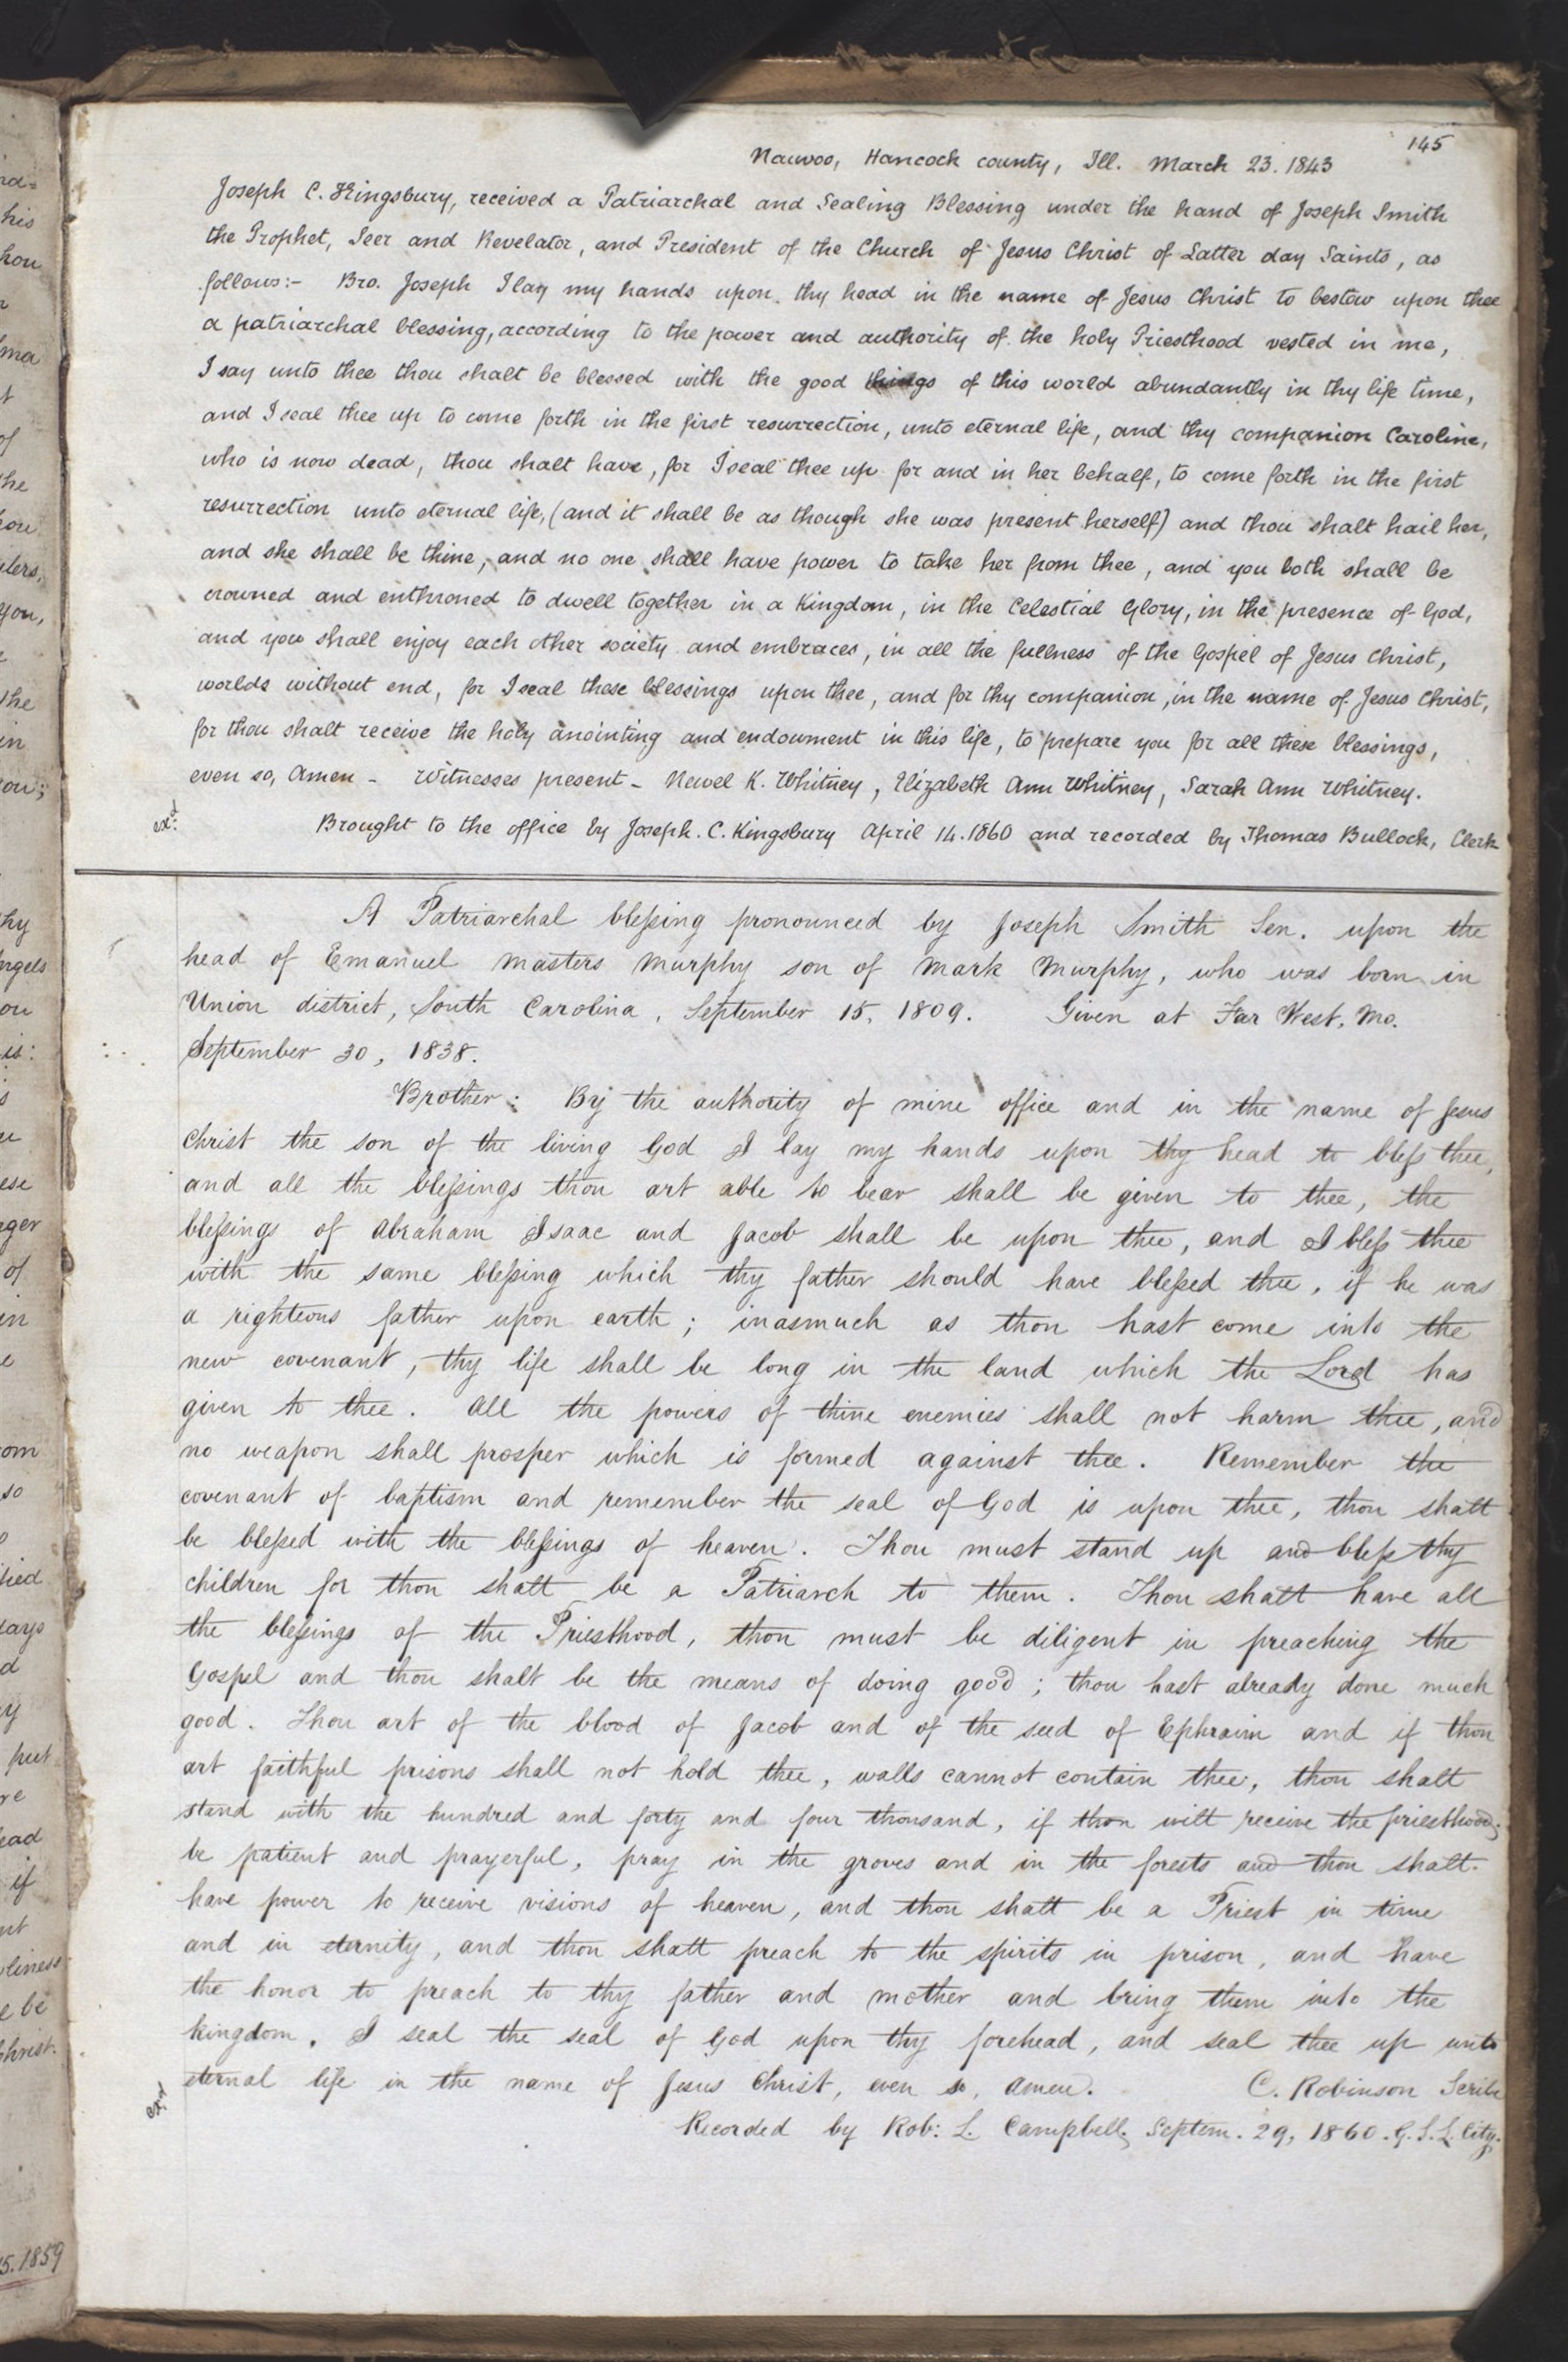 145
Nauvoo, Hancock county, Ill. March 23. 1843
Joseph C. Kingsbury, received a Patriarchal and Sealing Blessing under the hand of Joseph Smith
the Prophet, Seer and Revelator, and President of the Church of Jesus Christ of Latter day Saints, as
follows:- Bro. Joseph I lay my hands upon thy head in the name of Jesus Christ to bestow upon thee
a patriarchal blessing, according to the power and authority of the holy Priesthood vested in me,
I say unto thee thou shalt be blessed with the good things of this world abundantly in thy life time,
and I seal thee up to come forth in the first resurrection, unto eternal life, and thy companion Caroline,
who is now dead, thou shalt have, for I seal thee up for and in her behalf, to come forth in the first
resurrection unto eternal life, (and it shall be as though she was present herself) and thou shalt hail her,
and she shall be thine, and no one shall have power to take her from thee, and you both shall be
crowned and enthroned to dwell together in a Kingdom, in the Celestial Glory, in the presence of God,
and you shall enjoy each other society and embraces, in all the fullness of the Gospel of Jesus Christ,
worlds without end, for I seal these blessings upon thee, and for thy companion, in the name of Jesus Christ,
for thou shalt receive the holy anointing and endowment in this life, to prepare you for all these blessings,
even so, Amen - Witnesses present - Newel K. Whitney, Elizabeth Ann Whitney, Sarah Ann Whitney.
exd. Brought to the office by Joseph. C. Kingsbury April 14. 1860 and recorded by Thomas Bullock, Clerk
A Patriarchal blessing pronounced by Joseph Smith Sen. upon the
head of Emanuel Masters Murphy son of Mark Murphy, who was born in
Union district, South Carolina, September 15, 1809. Given at Far West, Mo.
September 30, 1838.
Brother: By the authority of mine office and in the name of Jesus
Christ the son of the living God I lay my hands upon thy head to bless thee,
and all the blessings thou art able to bear shall be given to thee, the
blessings of Abraham Isaac and Jacob shall be upon thee, and I bless thee
with the same blessing which thy father should have blessed thee, if he was
a righteous father upon earth; inasmuch as thou hast come into the
new covenant, thy life shall be long in the land which the Lord has
given to thee. All the powers of thine enemies shall not harm thee, and
no weapon shall prosper which is formed against thee. Remember the
covenant of baptism and remember the seal of God is upon thee, thou shalt
be blessed with the blessings of heaven. Thou must stand up and bless thy
children for thou shalt be a Patriarch to them. Thou shalt have all
the blessings of the Priesthood, thou must be diligent in preaching the
Gospel and thou shalt be the means of doing good; thou hast already done much
good. Thou art of the blood of Jacob and of the seed of Ephraim and if thou
art faithful prisons shall not hold thee, walls cannot contain thee, thou shalt
stand with the hundred and forty and four thousand, if thou wilt receive the priesthood;
be patient and prayerful, pray in the groves and in the forests and thou shalt
have power to receive visions of heaven, and thou shalt be a Priest in time
and in eternity, and thou shalt preach to the spirits in prison, and have
the honor to preach to thy father and mother and bring them into the
kingdom. I seal the seal of God upon thy forehead, and seal thee up unto
eternal life in the name of Jesus Christ, even so, Amen. C. Robinson Scribe
exd Recorded by Rob: L. Campbell, Septem. 29, 1860. G. S. L. City.